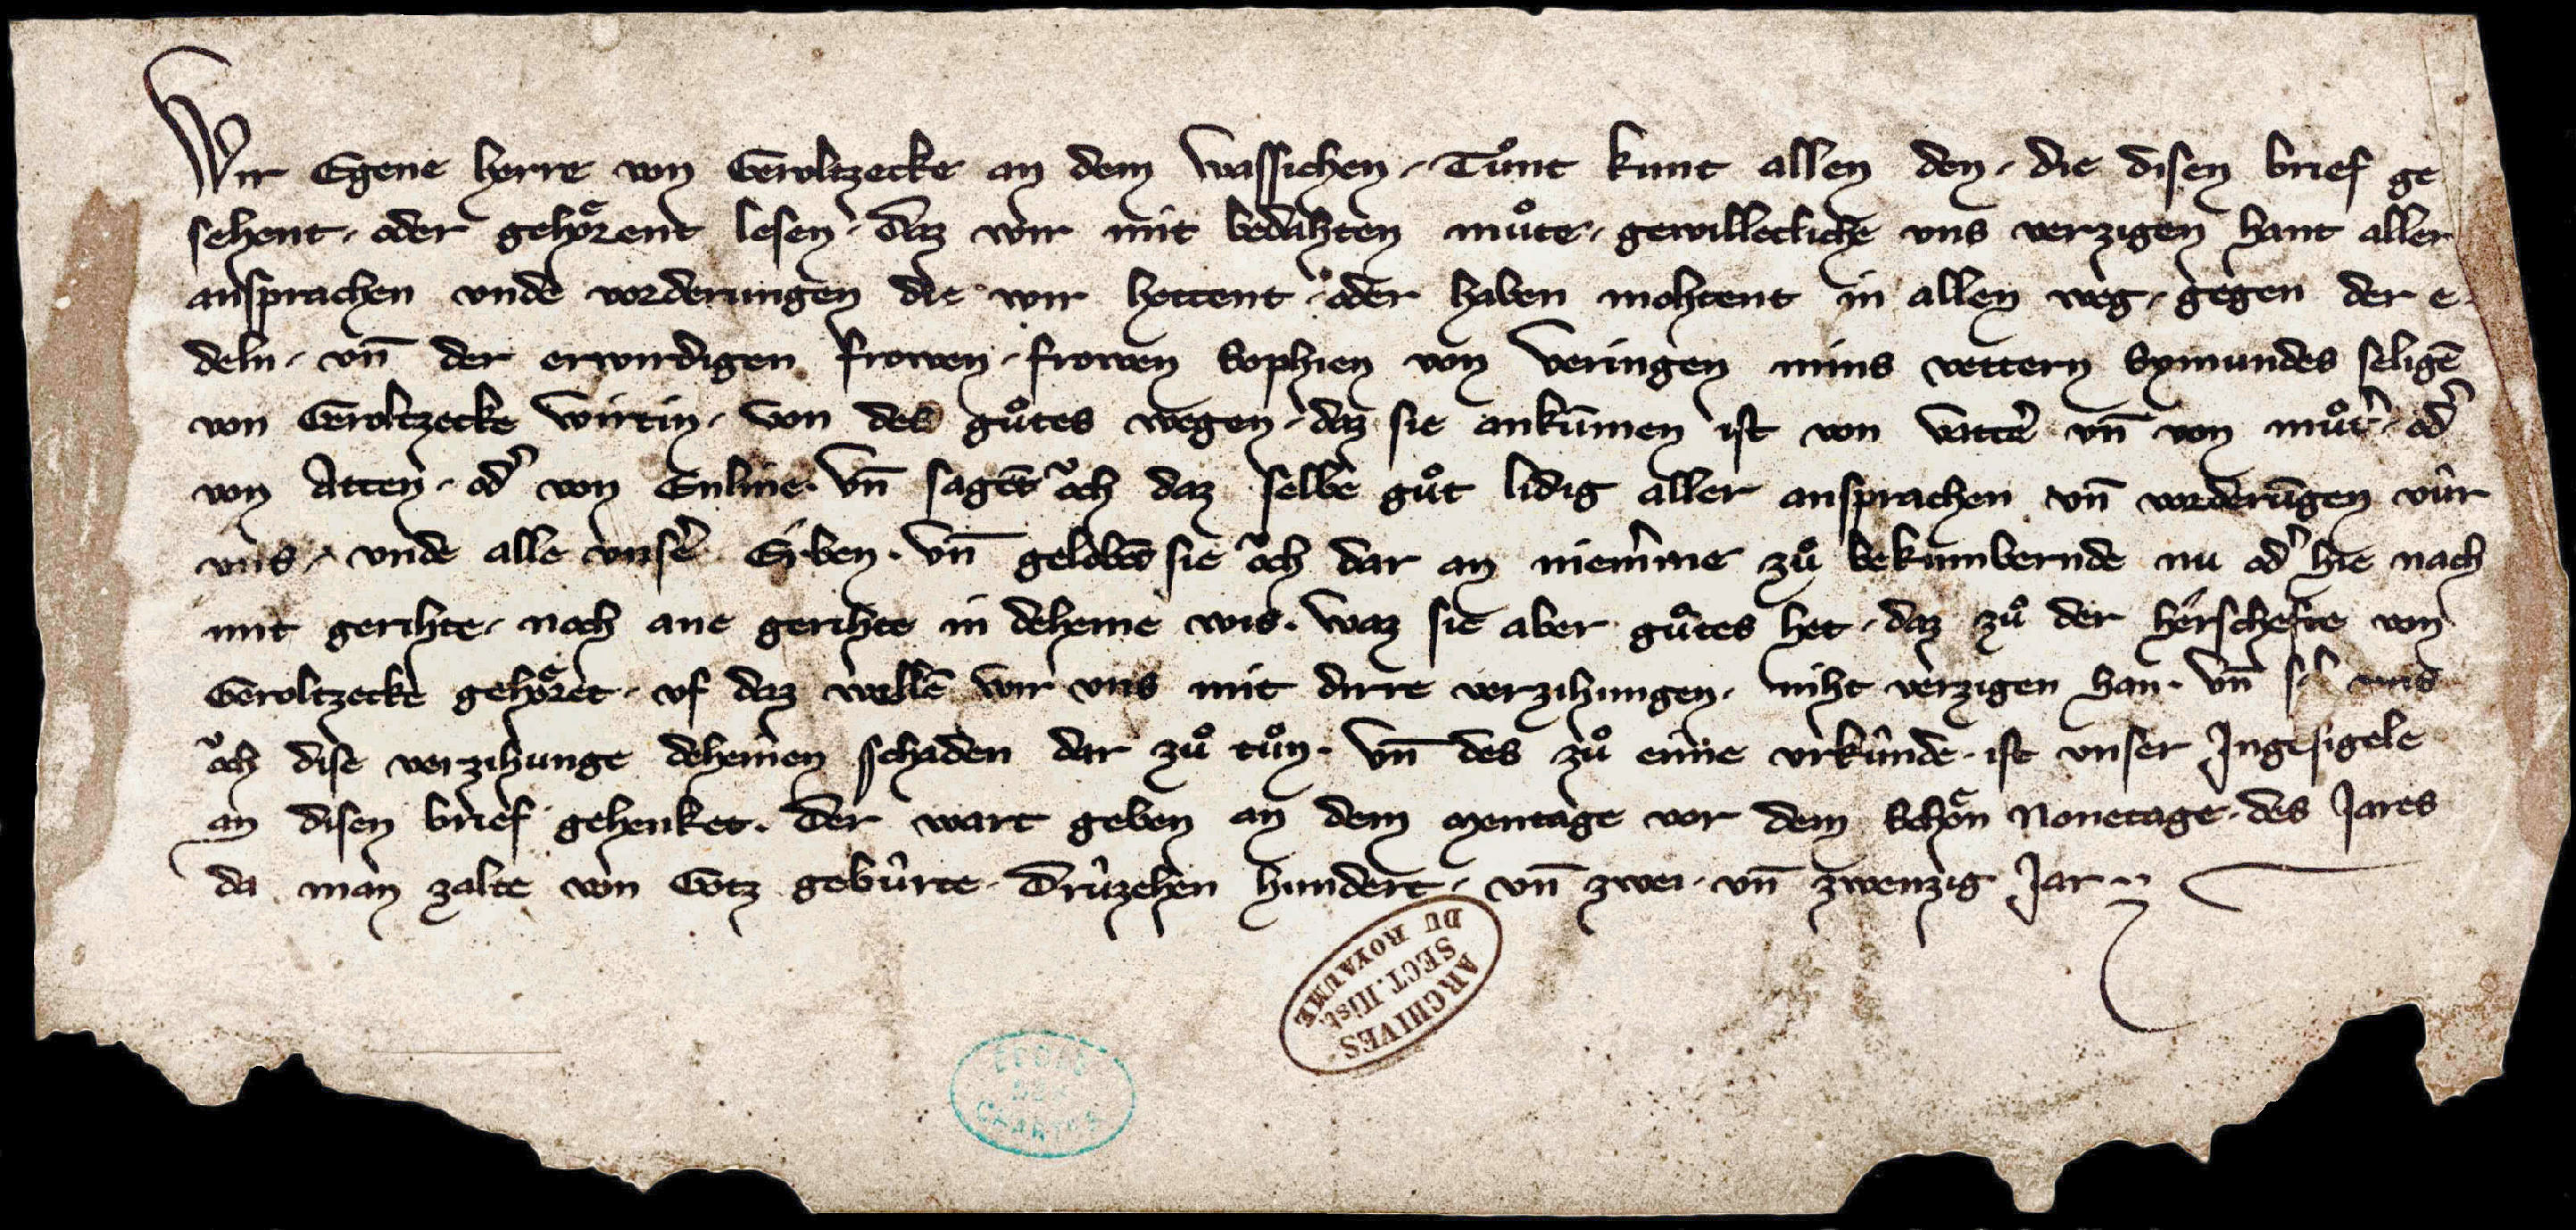 Wir Egene herre von Geroltzecke an dem Wassichen. Tuͦnt kunt allen den. die disen brief ge
sehent. oder gehoͤrent lesen. daz wir mit bedahten muͦte. gewilleclichē vns verzigen hant aller
ansprachen vnde vorderungen die wir hettent. oder haben mohtent in allen weg. gegen der e
deln. vn̄ der erwirdigen frowen. frowen Sophien von Veringen mins vettern Symundes seligē
von Geroltzecke wirtin. von des guͦtes wegen. daz sie ankūmen ist von vatter̍ vn̄ von muͦt̍. od̍
von Atten. od̍ von Enline. Vn̄ sagēt oͮch daz selbe guͦt lidig aller ansprachen vn̄ vorderūgen vûr
vns. vnde alle vnser̍ Erben. Vn̄ gelobēt sie oͮch dar an niem̍me zuͦ bekumbernde nu od̍ hie nach
mit gerihte. noch ane gerihte in deheine wis. waz sie aber guͦtes het. daz zuͦ der hérschefte von
Geroltzecke gehoͤret. vf daz wellē wir vns mit dirre verzihungen. niht verzigen han. Vn̄ sol vns
oͮch dise verzihunge deheinen schaden dar zuͦ tuͦn. Vn̄ des zuͦ eime vrkûnde. ist vnser Jngesigele
an disen brief gehenket. Der wart geben an dem mentage vor dem Schoͤn Nonetage. des Jares
da man zalte von Gotz gebûrte. Drûzehen hundert. vn̄ zwei. vn̄ zwenzig Jar
ARCHIVES
SECT. Hist.
DU ROYAUME
ECOLE
DES
CHARTES